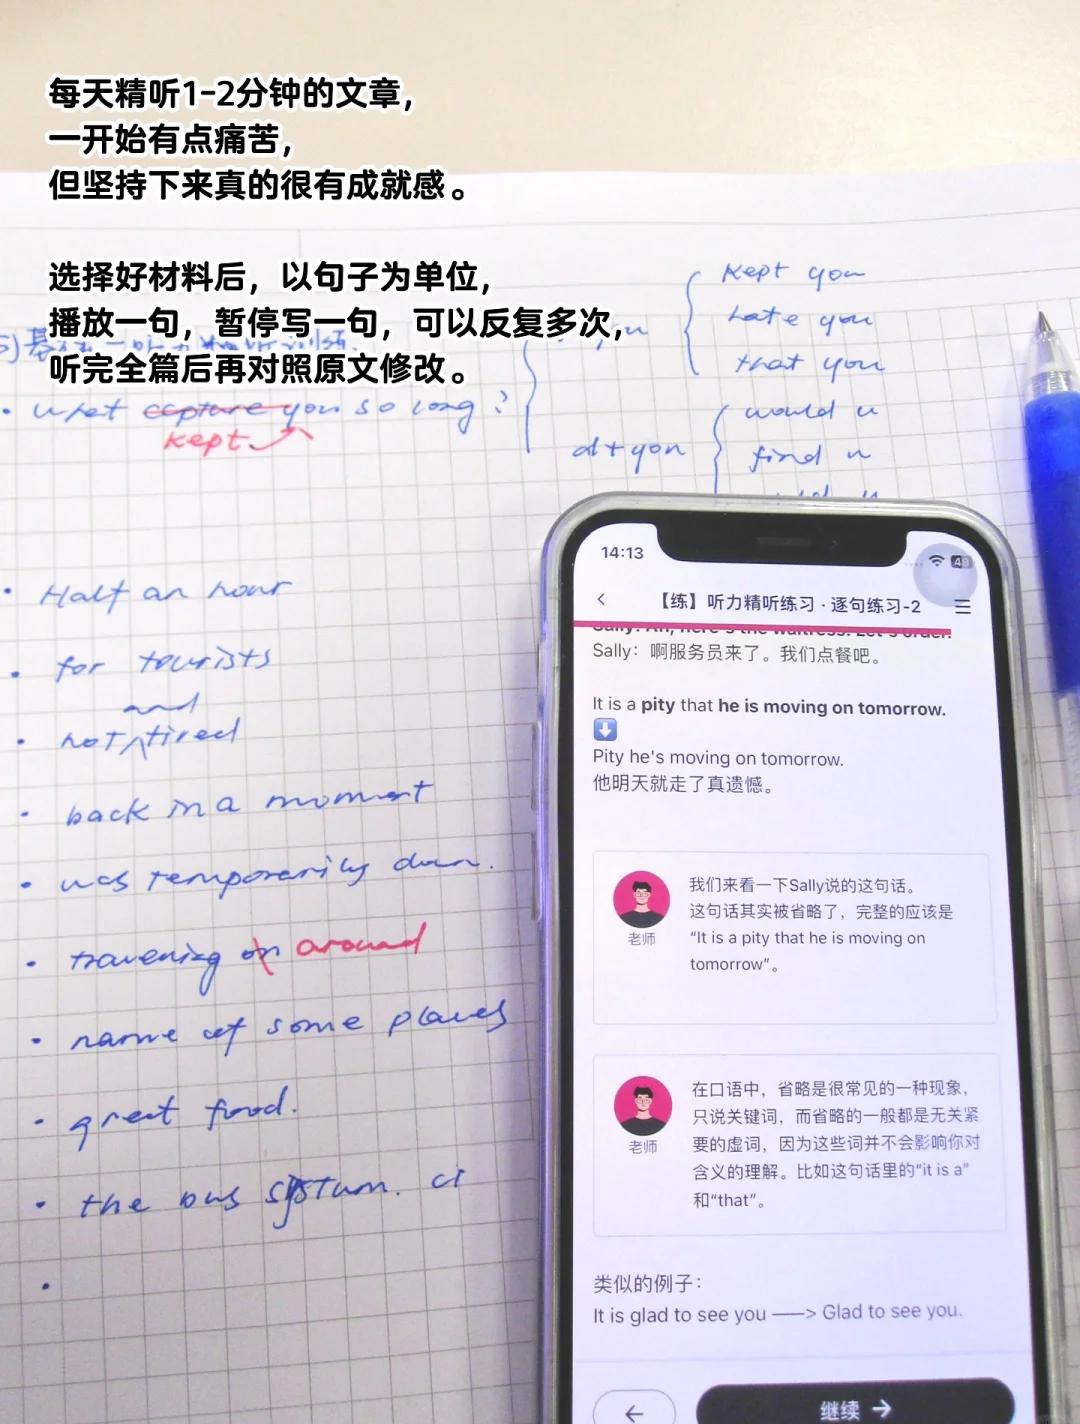 每天精听1-2分钟的文章，
一开始有点痛苦，
但坚持下来真的很有成就感。
选择好材料后，以句子为单位，
播放一句，暂停写一句，可以反复多次，
听完全篇后再对照原文修改。
what capture you so long?
kept
kept you
hate you
that you
d+you
would u
find u
Half an hour
for tourists
and
hot tired
back in a moment
was temporarily down.
traveling on around
name of some places
great food.
the bus system. ci
14:13
49
【练】听力精听练习·逐句练习-2
Sally: Ah, here's the waitress. Let's order.
Sally：啊服务员来了。我们点餐吧。
It is a pity that he is moving on tomorrow.
Pity he's moving on tomorrow.
他明天就走了真遗憾。
我们来看一下Sally说的这句话。
这句话其实被省略了，完整的应该是
“It is a pity that he is moving on
tomorrow”。
老师
在口语中，省略是很常见的一种现象，
只说关键词，而省略的一般都是无关紧
要的虚词，因为这些词并不会影响你对
含义的理解。比如这句话里的“it is a”
和“that”。
老师
类似的例子：
It is glad to see you ——> Glad to see you.
继续 →